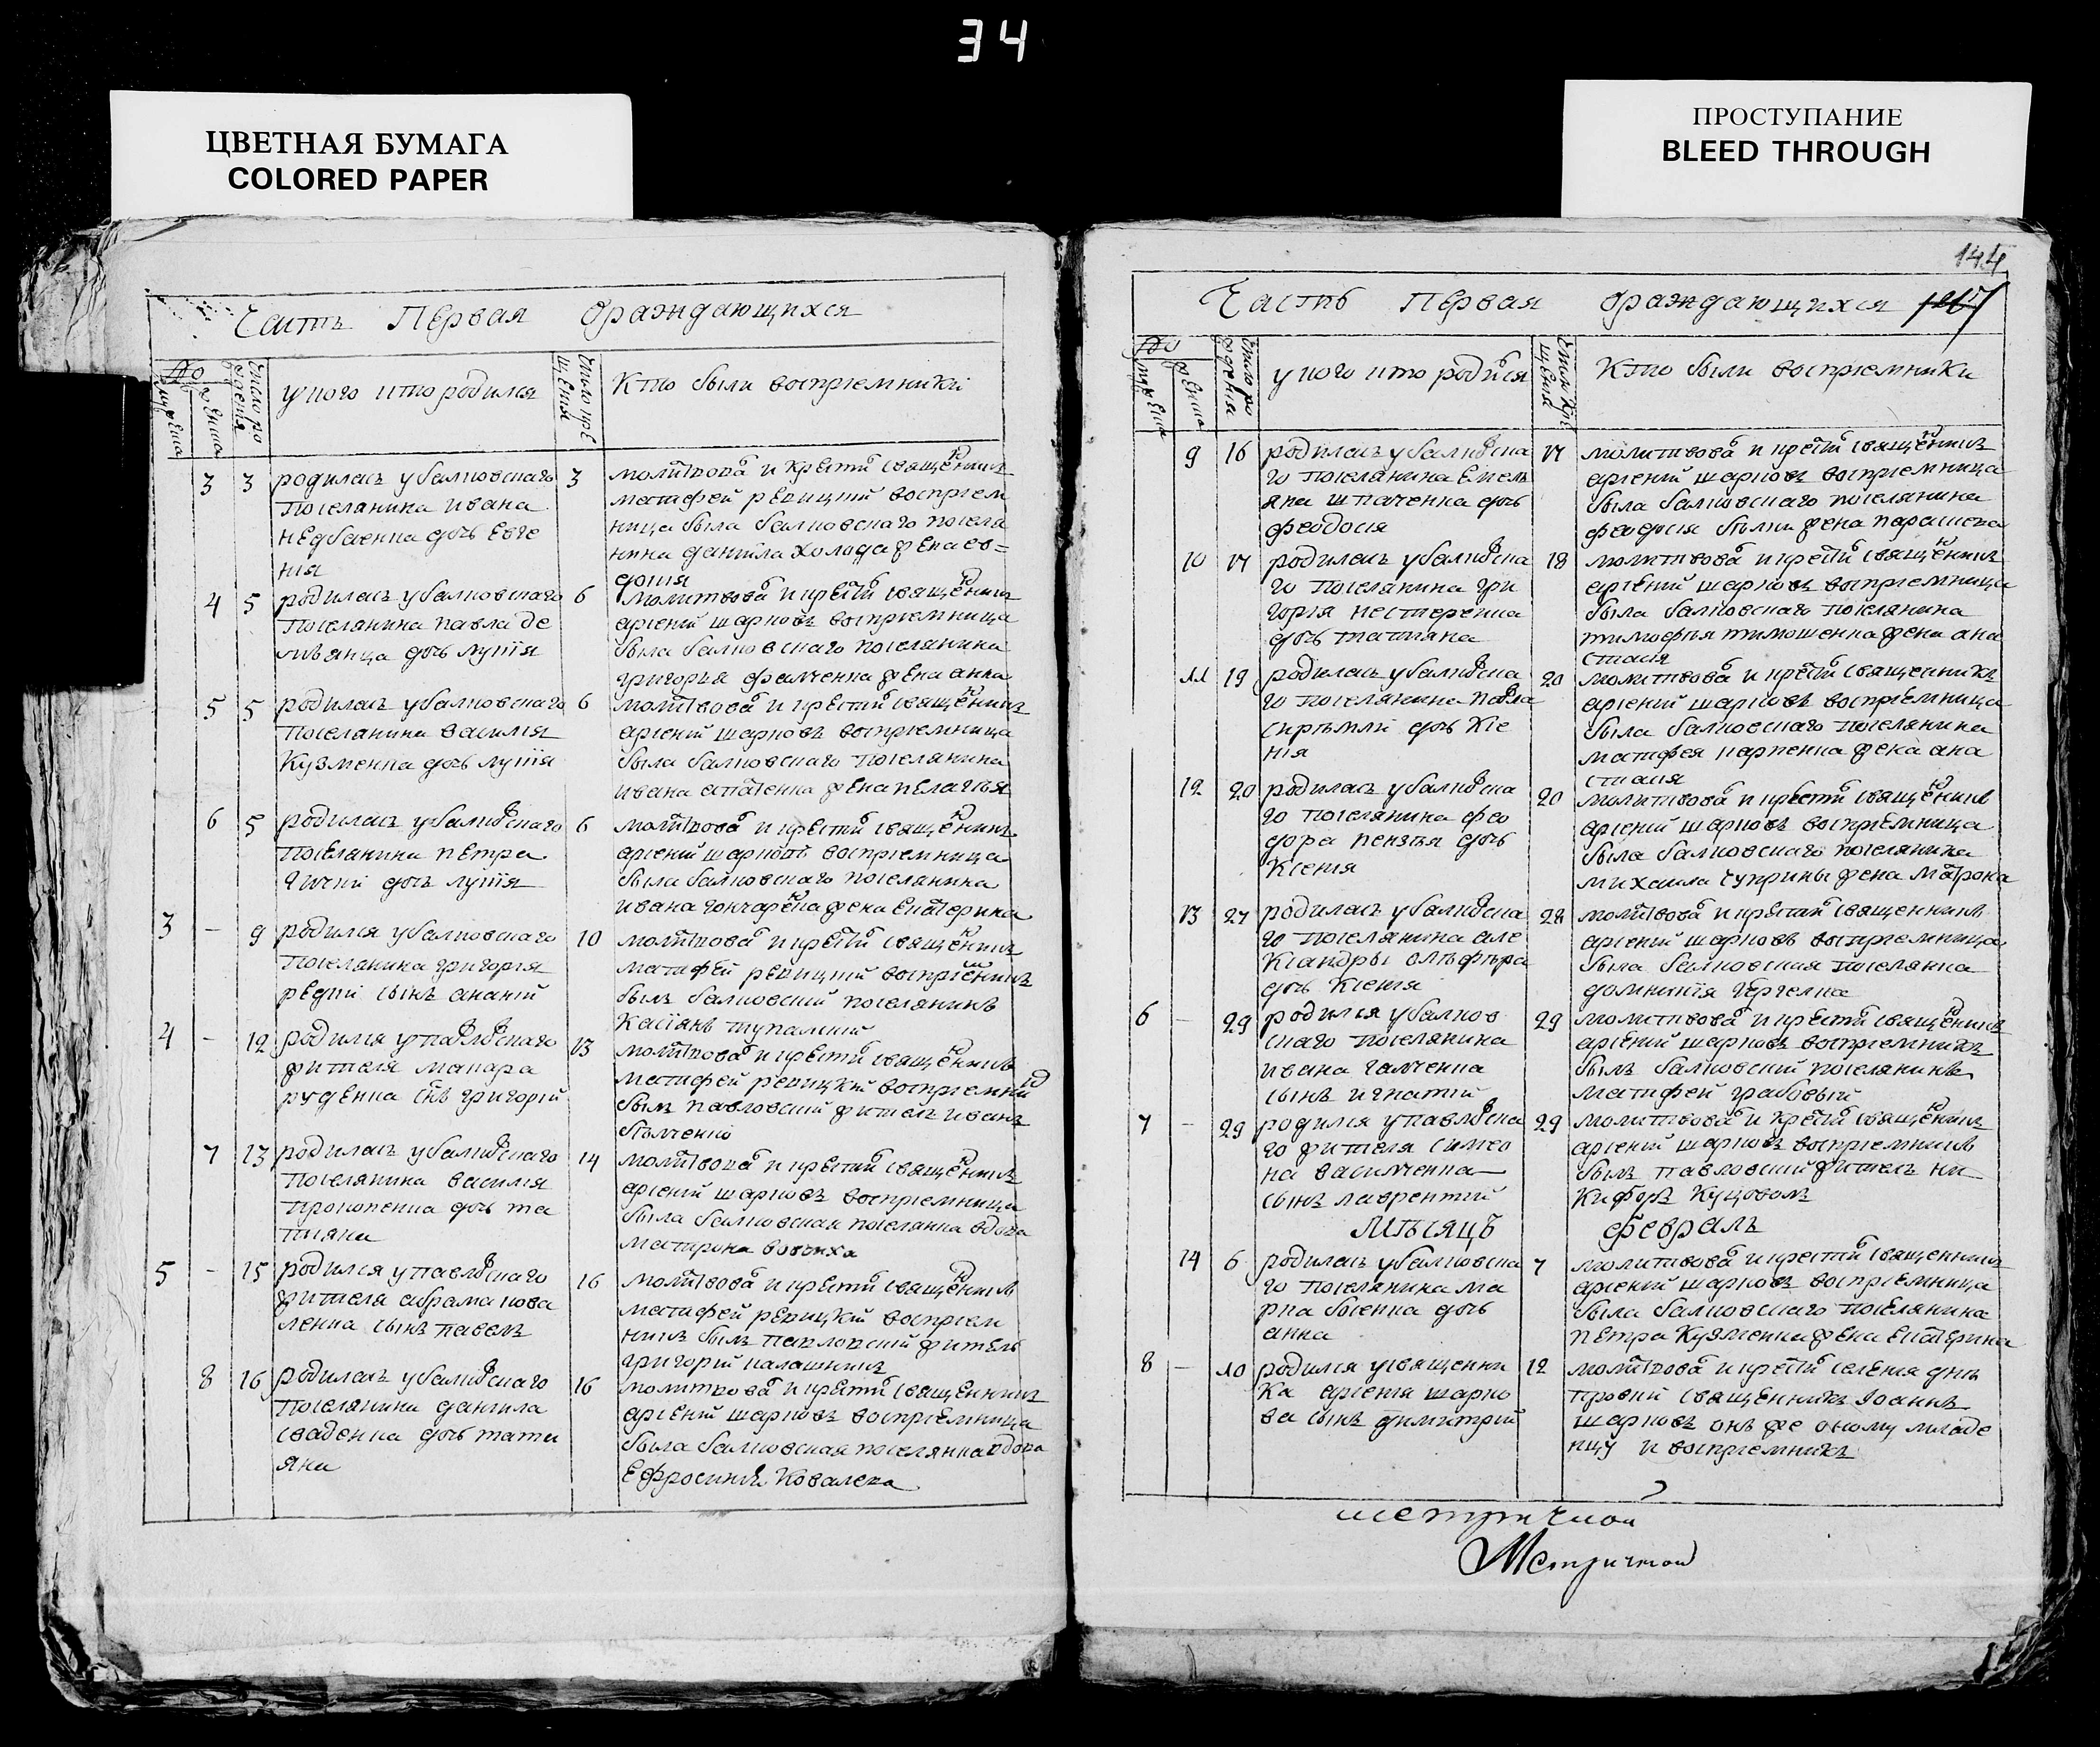 34
ЦВЕТНАЯ БУМАГА
COLORED PAPER
ПРОСТУПАНИЕ
BLEED THROUGH
Часть Первая ораждающихся
у кого кто родился
Кто были воспрiемники
3 3 родилась у балковскаго 3
поселянина ивана
недбаенка дочь евге
нiя
молитвовал и крестил священникъ
матфей рекицкiй воспрiем
ница была балковскаго поселя
нина данiила холода жена ев=
докiя
4 5 родилась у балковскаго 6
поселянина павла де
дочь лукiя
молитвовал и крестил священникъ
арсенiй шарковъ воспрiемница
была балковскаго поселянина
григорiя жена анна
5 5 родилась у балковскаго 6
поселянина василiя
кузменка дочь лукiя
молитвовал и крестил священникъ
арсенiй шарковъ воспрiемница
была балковскаго поселянина
ивана жена пелагiя
6 5 родилась у балковскаго 6
поселянина петра
дочь лукiя
молитвовал и крестил священникъ
арсенiй шарковъ воспрiемница
была балковскаго поселянина
ивана гончаренка жена екатерина
3 - 9 родился у балковскаго 10
поселянина григорiя
редки сынъ ананiй
молитвовал и крестил священникъ
матфей рекицкiй воспрiемникъ
былъ балковскiй поселянинъ
касiянъ тупалскiй
4 - 12 родился у павловскаго 13
жителя макара
руденка снъ григорiй
молитвовал и крестил священникъ
матфей рекицкiй воспрiемник
былъ павловскiй жителъ иванъ
7 13 родилась у балковскаго 14
поселянина василiя
прокопенка дочь та
тияна
молитвовал и крестил священникъ
арсенiй шарковъ воспрiемница
была балковская поселянка вдова
матрона вовчиха
5 - 15 родился у павловскаго 16
жителя абрама кова
ленка сынъ павелъ
молитвовал и крестил священникъ
матфей рекицкiй воспрiем
никъ былъ павловскiй житель
григорiй калашникъ
8 16 родилась у балковскаго 16
поселянина данiила
дочь тати
яна
молитвовал и крестил священникъ
арсенiй шарковъ воспрiемница
была балковская поселянка вдова
ефросинiя ковалева
144
Часть Первая ораждающихся
у кого кто родился
Кто были воспрiемники
9 16 родилась у балковска 17
го поселянина емель
яна шпаченка дочь
феодосiя
молитвовал и крестил священникъ
арсенiй шарковъ воспрiемница
была балковскаго поселянина
жена параскева
10 17 родилась у балковска 18
го поселянина гри
горiя нестеренка
дочь татiяна
молитвовал и крестил священникъ
арсенiй шарковъ воспрiемница
была балковскаго поселянина
тимофiя тимошенка жена ана
стасiя
11 19 родилась у балковска 20
го поселянина павла
дочь ксе
нiя
молитвовал и крестил священникъ
арсенiй шарковъ воспрiемница
была балковскаго поселянина
матфея карпенка жена ана
стасiя
12 20 родилась у балковска 20
го поселянина фео
дора дочь
ксенiя
молитвовал и крестил священникъ
арсенiй шарковъ воспрiемница
была балковскаго поселянина
михаила чуприны жена матрона
13 27 родилась у балковска 28
го поселянина але
ксандры олѣфѣра
дочь ксенiя
молитвовал и крестил священникъ
арсенiй шарковъ воспрiемница
была балковская поселянка
домникiя
6 - 29 родился у балков 29
скаго поселянина
ивана галченка
сынъ игнатiй
молитвовал и крестил священникъ
арсенiй шарковъ воспрiемникъ
былъ балковскiй поселянинъ
матфей грабовый
7 - 29 родился у павловска 29
го жителя симео
на василченка
сынъ лаврентiй
молитвовал и крестил священникъ
арсенiй шарковъ воспрiемникъ
былъ павловскiй жителъ ни
кифоръ куцоволъ
мѣсяцъ февралъ
14 6 родилась у балковска 7
го поселянина ма
рка дочь
анна
молитвовал и крестил священникъ
арсенiй шарковъ воспрiемница
была балковскаго поселянина
петра кузменка жена екатерина
8 - 10 родился у священни 12
ка арсенiя шарко
ва сынъ димитрiй
молитвовал и крестил селенiя днѣ
провки священникъ Iоаннъ
шарковъ онъ же оному младе
нцу и воспрiемникъ
метричной
Метричной